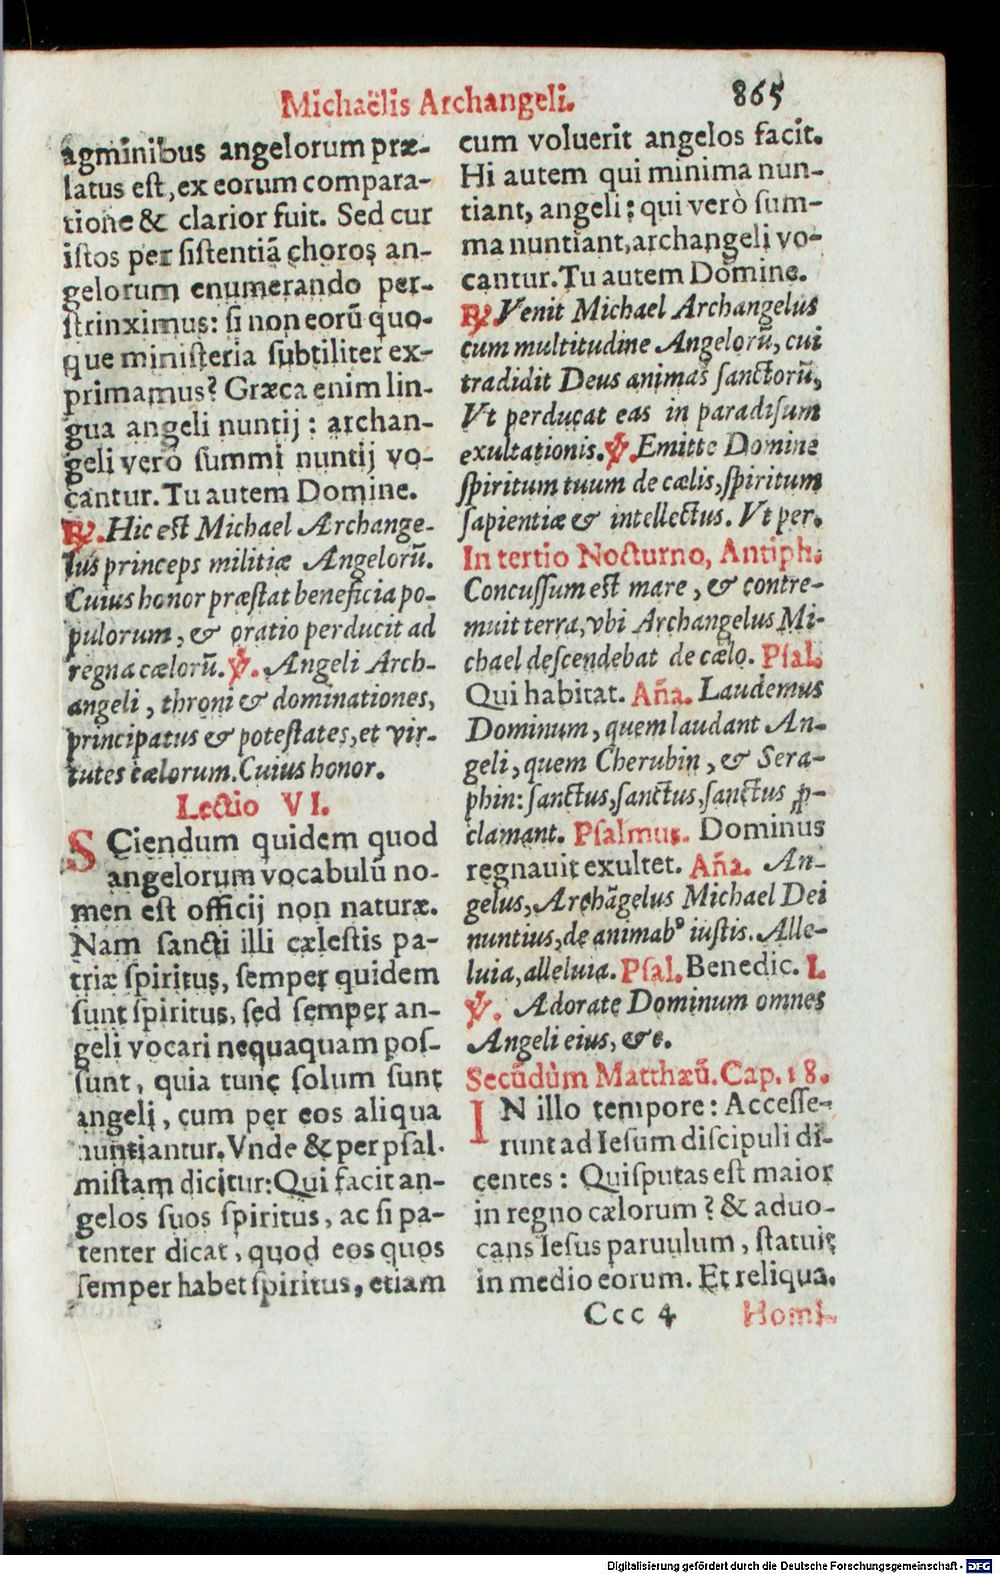 Michaëlis Archangeli.
865
agminibus angelorum præ-
latus est, ex eorum compara-
tione & clarior fuit. Sed cur
istos per sistentiā choros an-
gelorum enumerando per-
strinximus: si non eorū quo-
que ministeria subtiliter ex-
primamus? Græca enim lin-
gua angeli nuntij: archan-
geli verò summi nuntij vo-
cantur. Tu autem Domine.
℟. Hic est Michael Archange-
lus princeps militiæ Angelorū.
Cuius honor præstat beneficia po-
pulorum, & oratio perducit ad
regna cælorū. ℣. Angeli Arch-
angeli, throni & dominationes,
principatus & potestates, et vir-
tutes cælorum. Cuius honor.
Lectio VI.
SCiendum quidem quod
angelorum vocabulū no-
men est officij non naturæ.
Nam sancti illi cælestis pa-
triæ spiritus, semper quidem
sunt spiritus, sed semper an-
geli vocari nequaquam pos-
sunt, quia tunc solum sunt
angeli, cum per eos aliqua
nuntiantur. Vnde & per psal-
mistam dicitur: Qui facit an-
gelos suos spiritus, ac si pa-
tenter dicat, quod eos quos
semper habet spiritus, etiam
cum voluerit angelos facit.
Hi autem qui minima nun-
tiant, angeli: qui verò sum-
ma nuntiant, archangeli vo-
cantur. Tu autem Domine.
℟. Venit Michael Archangelus
cum multitudine Angelorū, cui
tradidit Deus animas sanctorū,
Vt perducat eas in paradisum
exultationis. ℣. Emitte Domine
spiritum tuum de cælis, spiritum
sapientiæ & intellectus. Vt per.
In tertio Nocturno, Antiph.
Concussum est mare, & contre-
muit terra, vbi Archangelus Mi-
chael descendebat de cælo. Psal.
Qui habitat. Aña. Laudemus
Dominum, quem laudant An-
geli, quem Cherubin, & Sera-
phin: sanctus, sanctus, sanctus ꝓ-
clamant. Psalmus. Dominus
regnauit exultet. Aña. An-
gelus, Archāgelus Michael Dei
nuntius, de animabꝰ iustis. Alle-
luia, alleluia. Psal. Benedic. I.
℣. Adorate Dominum omnes
Angeli eius, &c.
Secūdùm Matthæū. Cap. 18.
IN illo tempore: Accesse-
runt ad Iesum discipuli di-
centes: Quisputas est maior
in regno cælorum? & aduo-
cans Iesus paruulum, statuit
in medio eorum. Et reliqua.
Ccc 4
Homi-
Digitalisierung gefördert durch die Deutsche Forschungsgemeinschaft - DFG